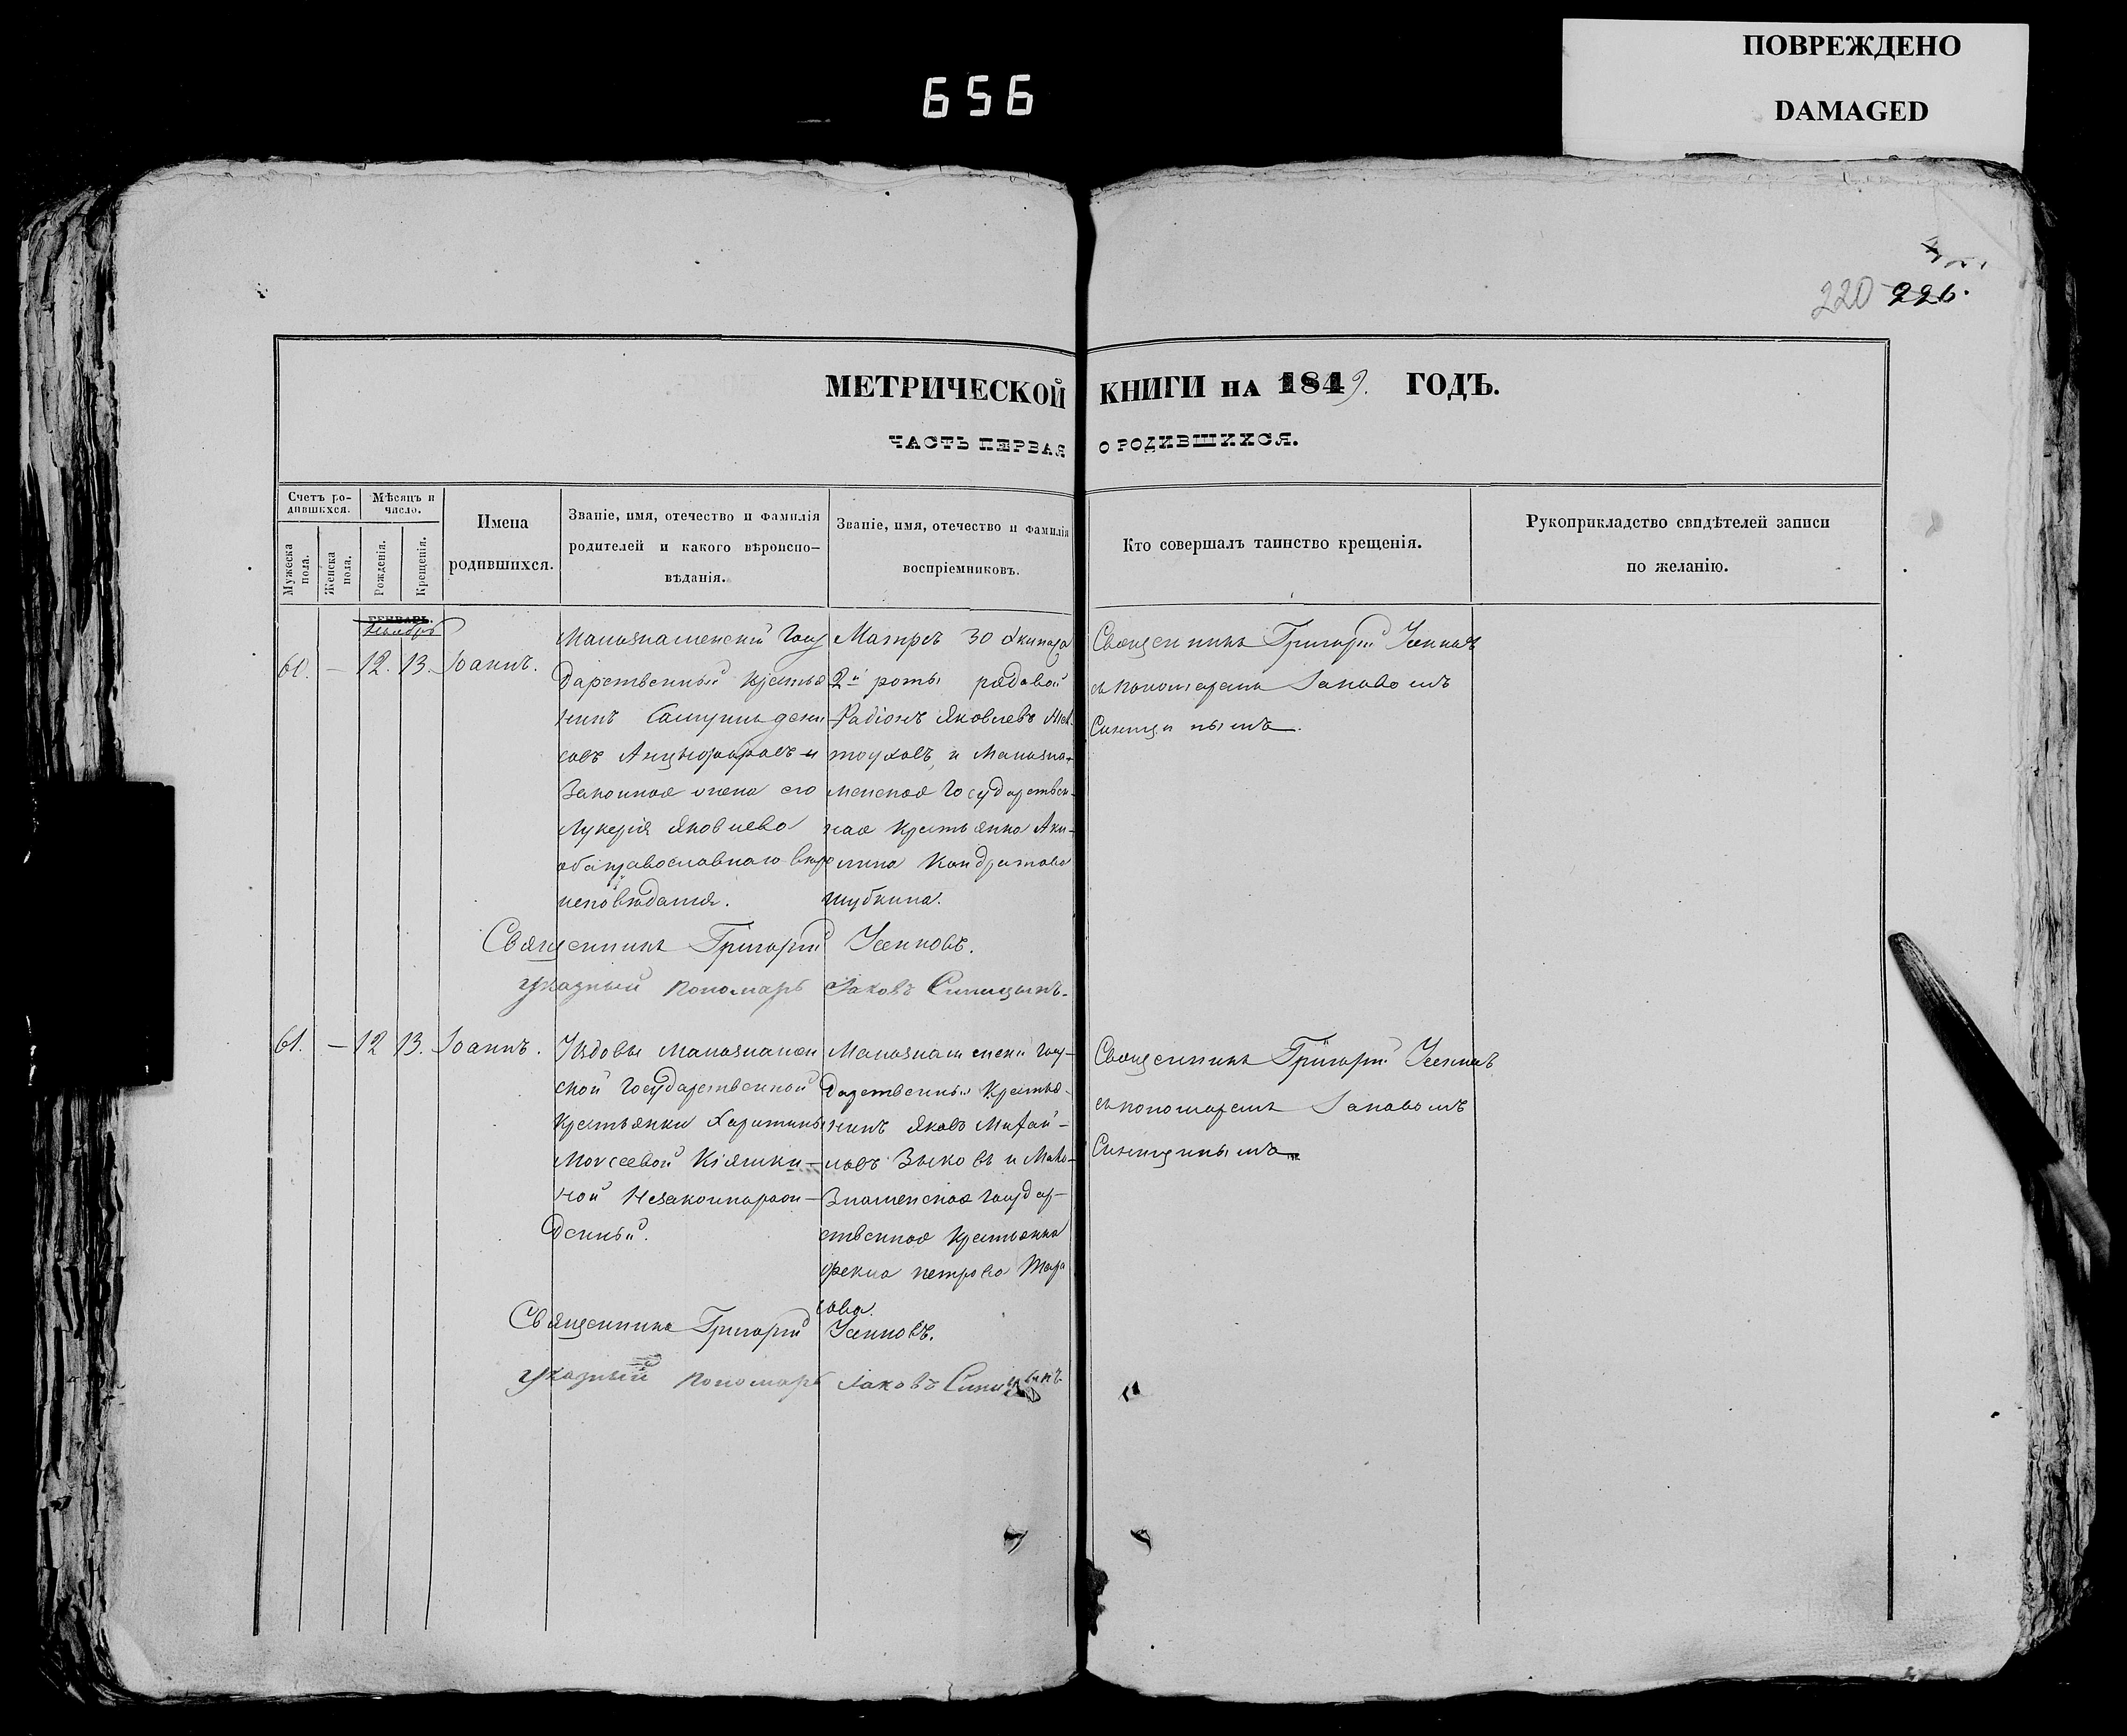 ПОВРЕЖДЕНО
DAMAGED
656
220 226.
МЕТРИЧЕСКОЙ КНИГИ НА 1849. ГОДЪ.
ЧАСТЬ ПЕРВАЯ О РОДИВШИХСЯ.
Счетъ ро-
дившихся.
Мужеска
пола.
Женска
пола.
Мѣсяцъ и
число.
Рожденія.
Крещенія.
Имена
родившихся.
Званіе, имя, отечество и фамилія
родителей и какого вѣроиспо-
вѣданія.
Званіе, имя, отечество и фамилія
воспріемниковъ.
Кто совершалъ таинство крещенія.
Рукоприкладство свидѣтелей записи
по желанію.
ГЕНВАРЬ.
декабрь
60. — 12. 13. Іоаннъ.
Малознаменскій Госу
дарственный крестья
нинъ
и
Законная жена его
Лукерія Яковлева
оба православнаго вѣро
исповѣданія.
Матрсъ 30 Экипажа
2й роты рядовой
Радіонъ Яковлевъ
и Малозна-
менская Государствен-
ная крестьянка Аки-
лина Кондратова
Шубкина.
Священникъ Григорій Усенковъ
съ пономаремъ Іаковомъ
Синицинымъ.
Священникъ Григорій Усенковъ.
указный пономарь Іаковъ Синицынъ.
61. — 12 13. Іоаннъ.
У вдовы Малознамен
ской Государственной
Крестьянки Харитины
Моисеевой Кіяшки-
ной Незаконнорож-
денный.
Малознаменскій Госу-
дарственный Крестья-
нинъ Яковъ Михай-
ловъ Зыковъ и Мало-
Знаменская Государ-
ственная Крестьянка
Фекла Петрова Тара
сова.
Священникъ Григорій Усенковъ
съ пономаремъ Іаковомъ
Синицинымъ
Священникъ Григорій Усенковъ.
указный пономарь Іаковъ Синицынъ